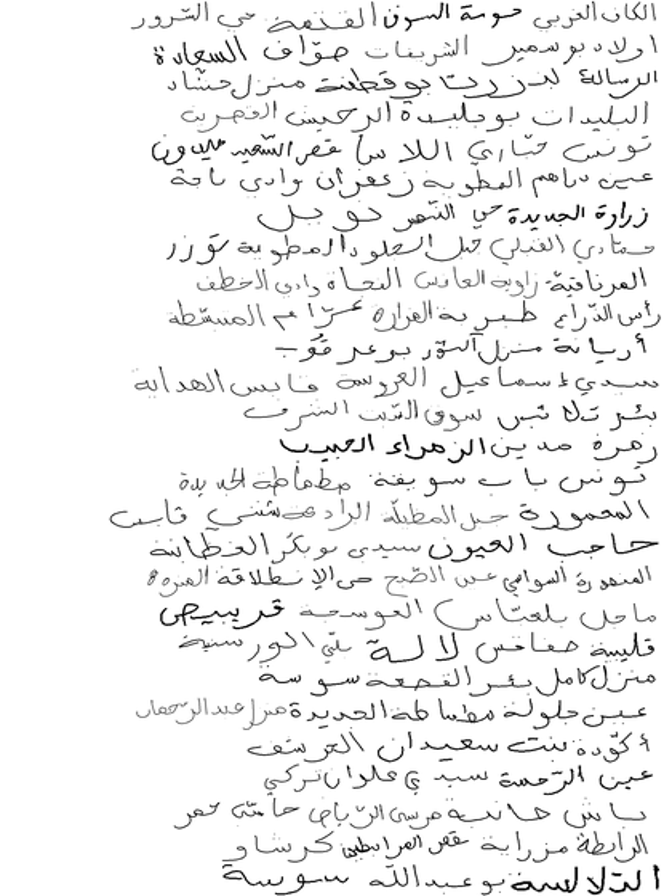 الكاف الغربي حوسة السوق القنفعة حي السرور
اولاد بوسمير الشريفات صوّاف السعادة
الرسالة بنزرت بوقطنة منزل حشاد
البليدات بوجليدة الرخيش القصرين
تونس خنازي اللاسا قصر السعيد ميدون
عين دراهم المطوية زعفران وادي باجة
زرارة الجديدة حي النصر دوبل
حمادي القبلي جبل الجلود المطوية توزر
المرناقية زاوية العادس النجاة وادي الخطف
رأس الذراع طبربة القرارة المبسّطة
أريانة منزل النّور بوعرقوب
سيدي إسماعيل العروسة قابس الهداية
بئر تلالس سوق السّبت الشرف
زهرة مدين الزهراء الحبيب
تونس باب سويقة مطماطة الجديدة
المعمورة جبل المظيلة الرادعة شنني قابس
حاجب العيون سيدي بوبكر القطانية
المنصورة السواسي عين الصّبح حي الإنطلاقة
ماجل بلعبّاس العوسجة قريبيص
قليبية صفاقس لالة بلّي الورسنية
منزل كامل بئر القصعة سوسة
عين جلولة مطماطة الجديدة
أكّودة بنت سعيدان العريشف
عين الرّحمة سيدي علوان تركي
باش حانبة مرسى الرّياض حامّة قصر
الرابطة مزراية قصر المرابطين كرشاو
الثلالسة بوعبدالله سوسة